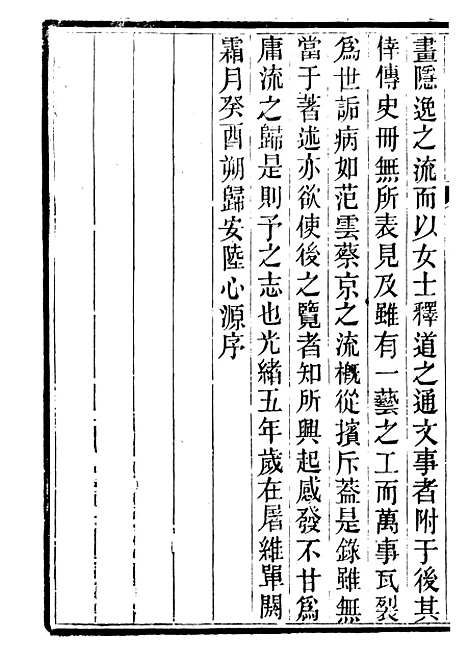 畫隱逸之流而以女士釋道之通文事者附于後其
倖傳史冊無所表見及雖有一藝之工而萬事瓦裂
爲世詬病如范雲蔡京之流槪從擯斥葢是錄雖無
當于著述亦欲使後之覽者知所興起感發不甘爲
庸流之歸是則予之志也光緒五年歲在屠維單閼
霜月癸酉朔歸安陸心源序